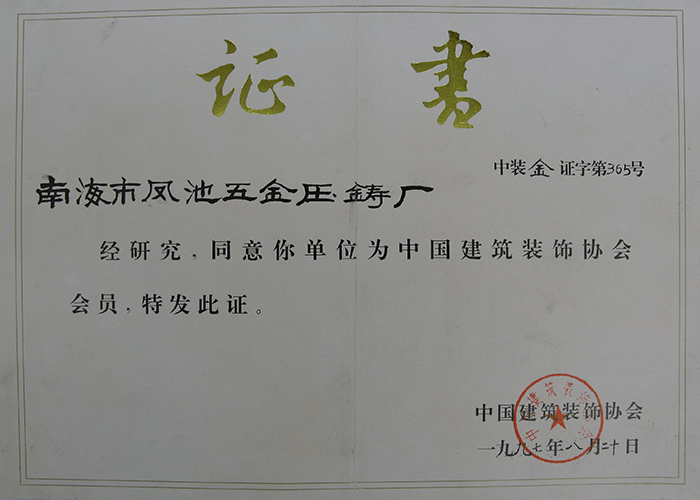 证书
中装金证字第365号
南海市凤池五金压铸厂
经研究，同意你单位为中国建筑装饰协会
会员，特发此证。
中国建筑装饰协会
中国建筑装饰协会
一九九七年八月二十日